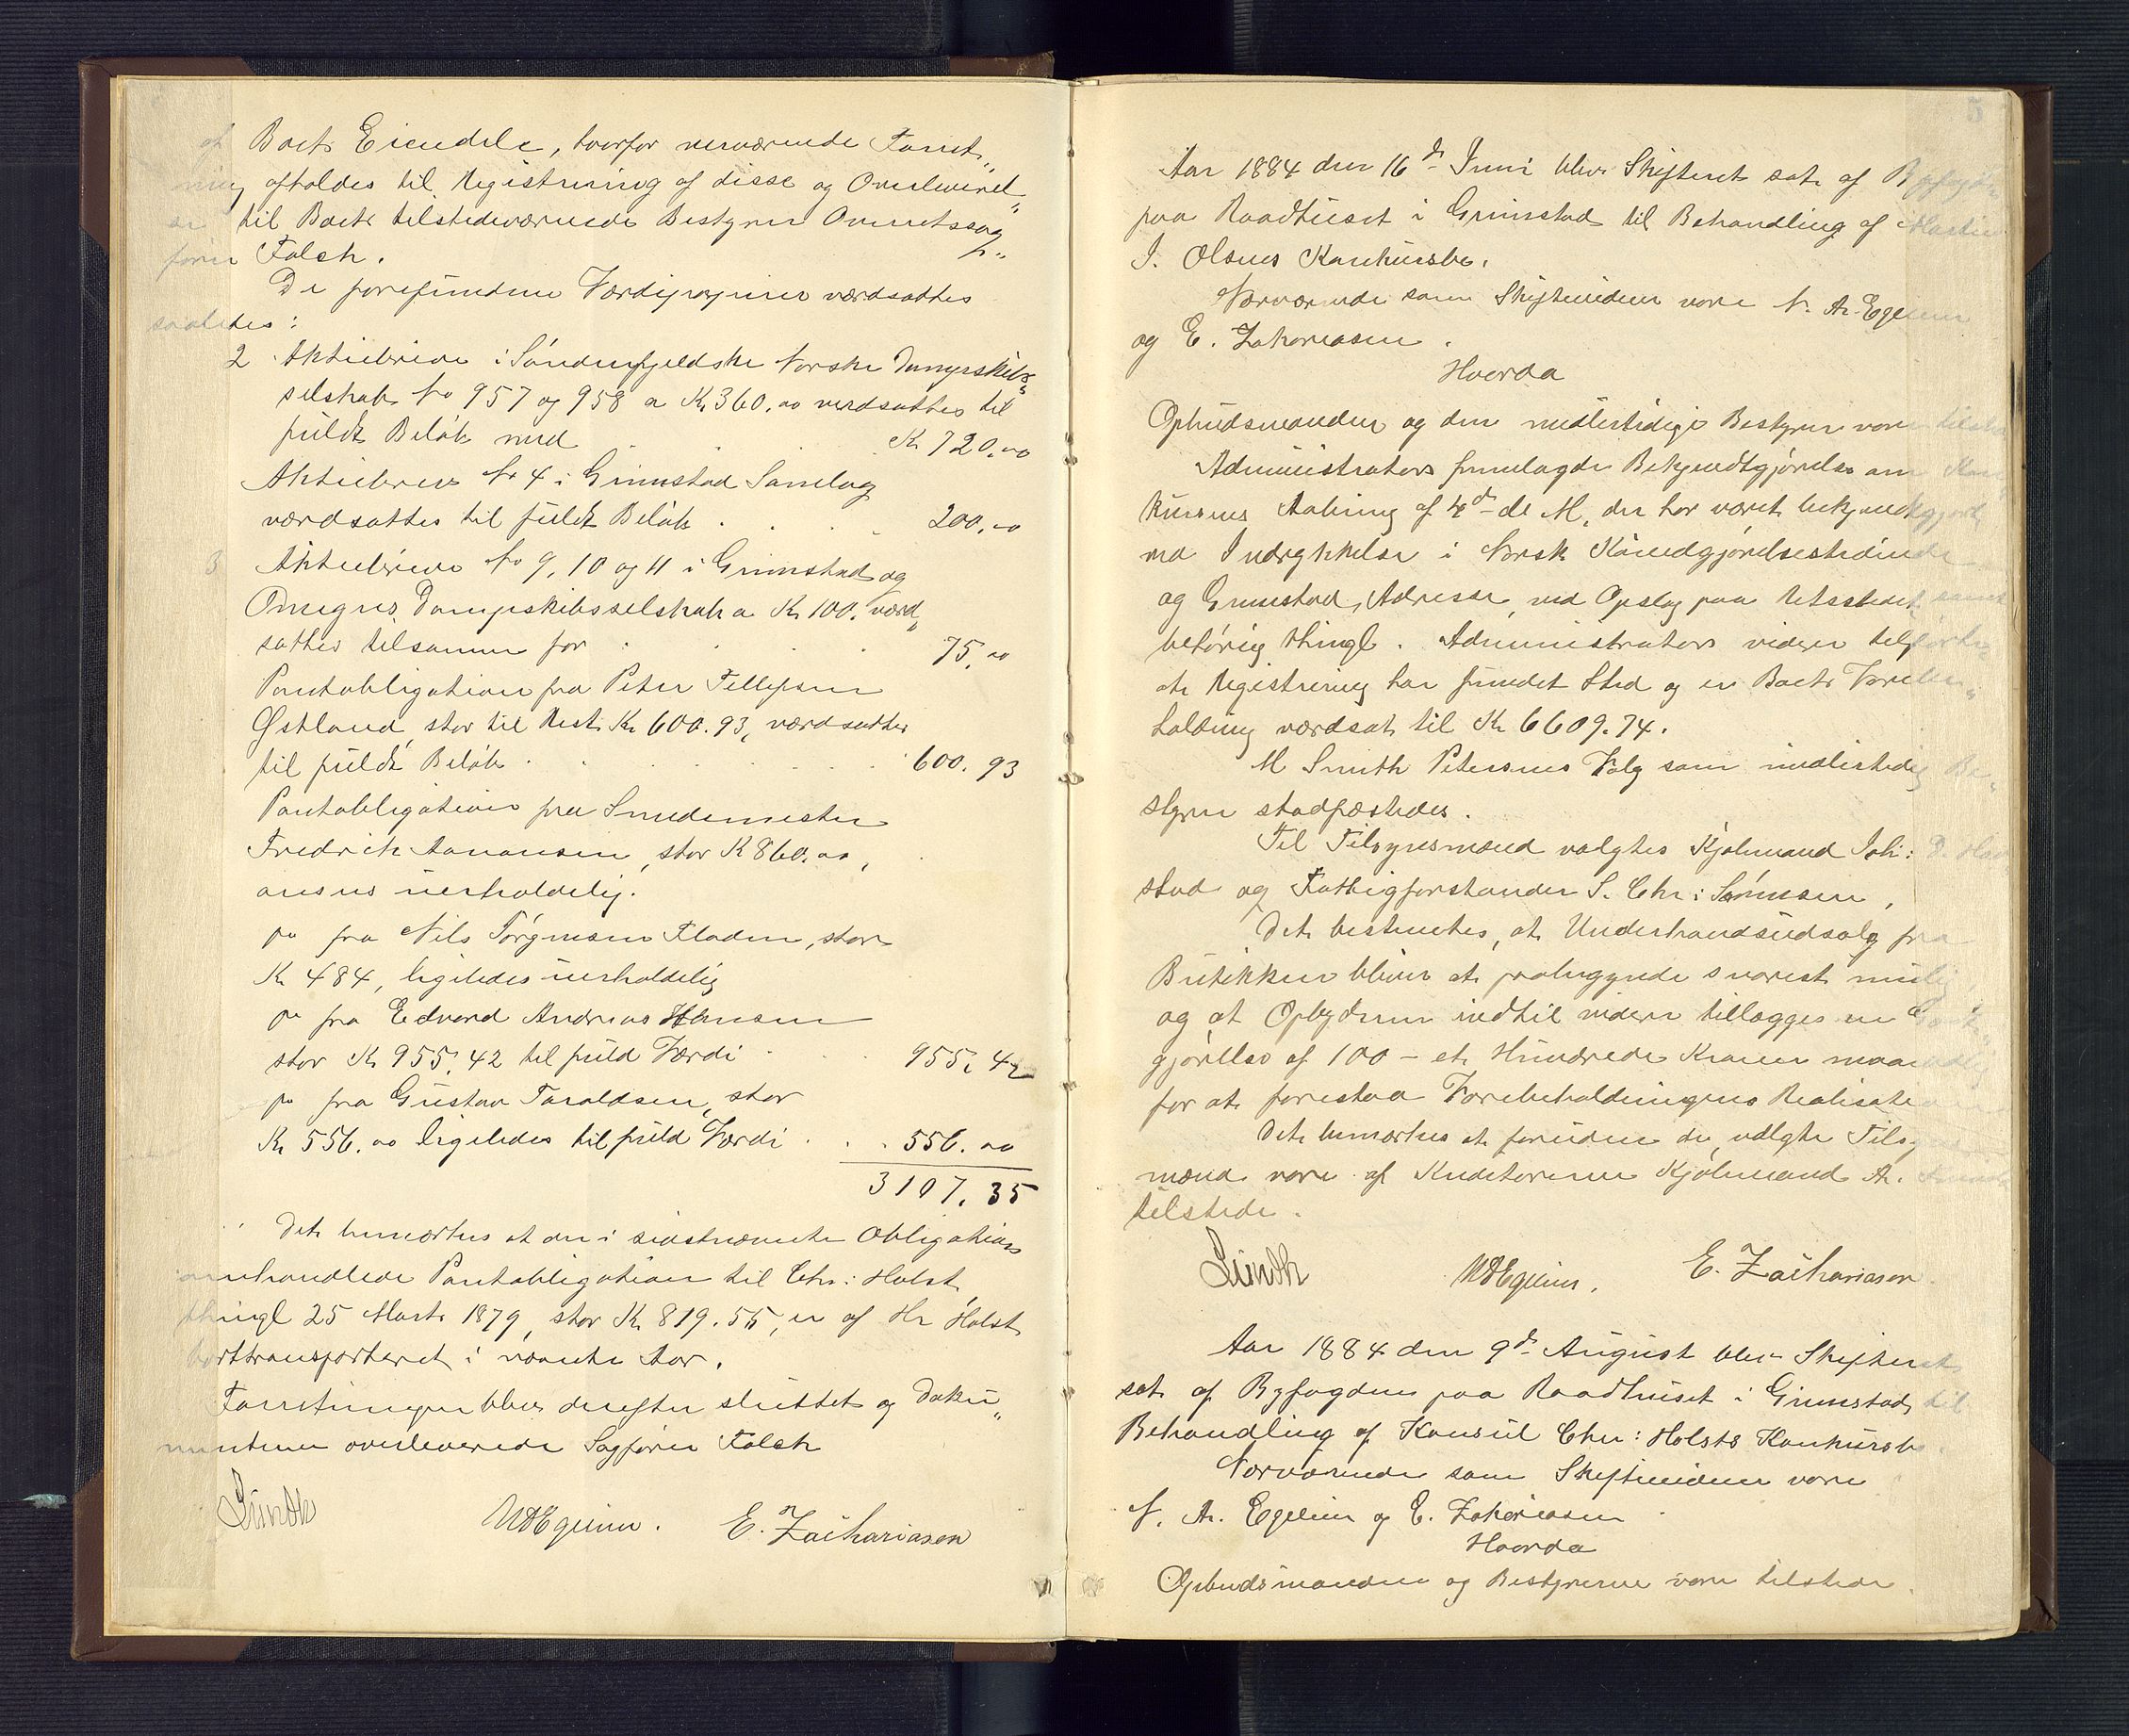 af Boets Eiendele, hvorfor nerværende Forret„
ning afholdes til Registrering af disse og Overleverel„
se til Boets tilstedeværende Bestyrer Overretssag„
fører Falch.
De forefundne Værdipapirer værdsattes
saaledes:
2 Aktiebreve i Søndenfjeldske Norske Dampskibs„
selskab No 957 og 958 a Kr 360.00 verdsattes til
fuldt Beløb med Kr 720.00
Aktiebrev No 4 i Grimstad Samlag
værdsattes til fuldt Beløb 200.00
3 Aktiebreve No 9, 10 og 11 i Grimstad og
Omegns Dampskibsselskab a Kr 100. værd„
sattes tilsammen for 75.00
Pantobligation fra Peter Tellefsen
Østland, stor til Rest Kr 600.93, værdsattes
til fuldt Beløb 600.93
Pantobligation fra Smedemester
Fredrich Aanonsen, stor K 860.00,
ansees uerholdelig.
do fra Nils Jørgensen Fladen, stor
Kr 484, ligeledes uerholdelig
do fra Edvard Andreas Hansen
stor Kr 955.42 til fuld Værdi 955.42
do fra Gustav Taraldsen, stor
Kr 556.00 ligeledes til fuld Værdi 556.00
3107.35
Det bemærkes at den i sidstnævnte Obligation
omhandlede Pantobligation til Chr: Holst,
thingl 25 Marts 1879, stor Kr. 819.55, er af Hr Holst
borttransporteret i nævnte Aar.
Forretningen blev derefter sluttet og Doku„
menterne overleverede Sagfører Falch
Lundh NAEgelien. E. Zachariasen
5
Aar 1884 den 16de Juni blev Skifteret sat af Byfogden
paa Raadhuset i Grimstad til Behandling af Martin
J. Olsens Konkursbo.
Nærværende som Skiftevidner vare N. A. Egelien
og E. Zakariasen.
Hvorda
Opbudsmanden og den midlertidige Bestyrer vare tilstede
Administrator fremlagde Bekjendtgjørelse om Kon„
kursens Aabning af 4de ds M, der har været bekjendtgjort
ved Indrykkelse i Norsk Kundgjørelsestidende
og Grimstad Adresse, ved Opslag paa Retsstedet samt
behørig thingl. Administrator videre tilførte
at Registrering har fundet Sted og er Boets Varebe„
holdning værdsat til Kr 6609.74.
M Smith Petersens Valg som midlertidig Be„
styrer stadfæstedes.
Til Tilsynsmænd valgtes Kjøbmand Joh: D. Hav
stad og Fattigforstander S. Chr: Sørensen,
Det bestemtes, at Underhaandsudsalg fra
Butikken bliver at paabegynde snarest mulig,
og at Opbyderen indtil videre tillægges en Godt„
gjørelse af 100 – et Hundrede Kroner maanedlig
for at forestaa Varebeholdningens Realisation
Det bemærkes at foruden de valgte Tilsyns
mænd vare af Kreditorerne Kjøbmand A.
tilstede.
Lundh NAEgelien. E. Zachariasen.
Aar 1884 den 9de August blev Skifteret
sat af Byfogden paa Raadhuset i Grimstad til
Behandling af Konsul Chr: Holsts Konkursbo.
Nærværende som Skiftevidner vare
N. A. Egelien og E. Zakariasen
Hvorda
Opbudsmanden og Bestyrerne vare tilstede.